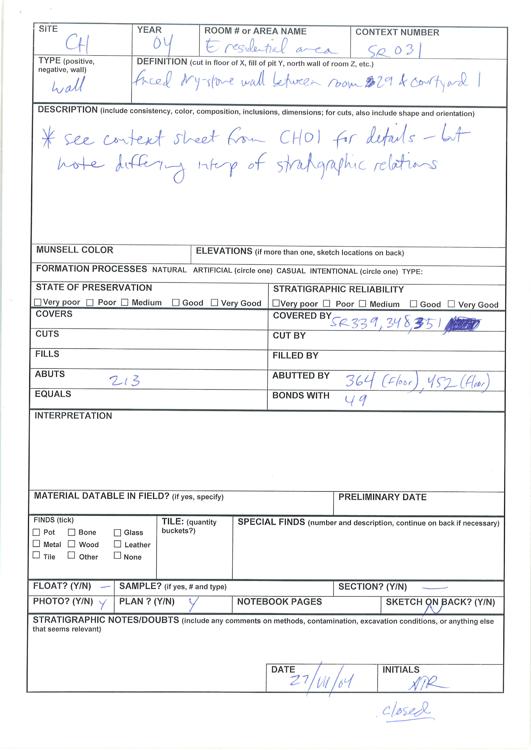 SITE CH
YEAR 04
ROOM # or AREA NAME E residential area
CONTEXT NUMBER SR 031
TYPE (positive, negative, wall) wall
DEFINITION (cut in floor of X, fill of pit Y, north wall of room 2, etc.)
faced dry-stone wall between room 29 & courtyard 1
DESCRIPTION (include consistency, color, composition, inclusions, dimensions; for cuts, also include shape and orientation)
* see context sheet from CH01 for details – but
note differing interp of stratigraphic relations
MUNSELL COLOR
ELEVATIONS (if more than one, sketch locations on back)
FORMATION PROCESSES NATURAL ARTIFICIAL (circle one) CASUAL INTENTIONAL (circle one) TYPE:
STATE OF PRESERVATION
STRATIGRAPHIC RELIABILITY
☐ Very poor ☐ Poor ☐ Medium ☐ Good ☐ Very Good
☐ Very poor ☐ Poor ☐ Medium ☐ Good ☐ Very Good
COVERS
COVERED BY SR339, 348, 351
CUTS
CUT BY
FILLS
FILLED BY
ABUTS 213
ABUTTED BY 364 (floor), 452 (floor)
EQUALS
BONDS WITH 49
INTERPRETATION
MATERIAL DATABLE IN FIELD? (if yes, specify)
PRELIMINARY DATE
FINDS (tick)
☐ Pot ☐ Bone ☐ Glass
☐ Metal ☐ Wood ☐ Leather
☐ Tile ☐ Other ☐ None
TILE: (quantity buckets?)
SPECIAL FINDS (number and description, continue on back if necessary)
FLOAT? (Y/N) —
SAMPLE? (if yes, # and type)
SECTION? (Y/N) —
PHOTO? (Y/N) Y
PLAN ? (Y/N) Y
NOTEBOOK PAGES
SKETCH ON BACK? (Y/N) N
STRATIGRAPHIC NOTES/DOUBTS (include any comments on methods, contamination, excavation conditions, or anything else
that seems relevant)
DATE 27/VII/04
INITIALS
closed